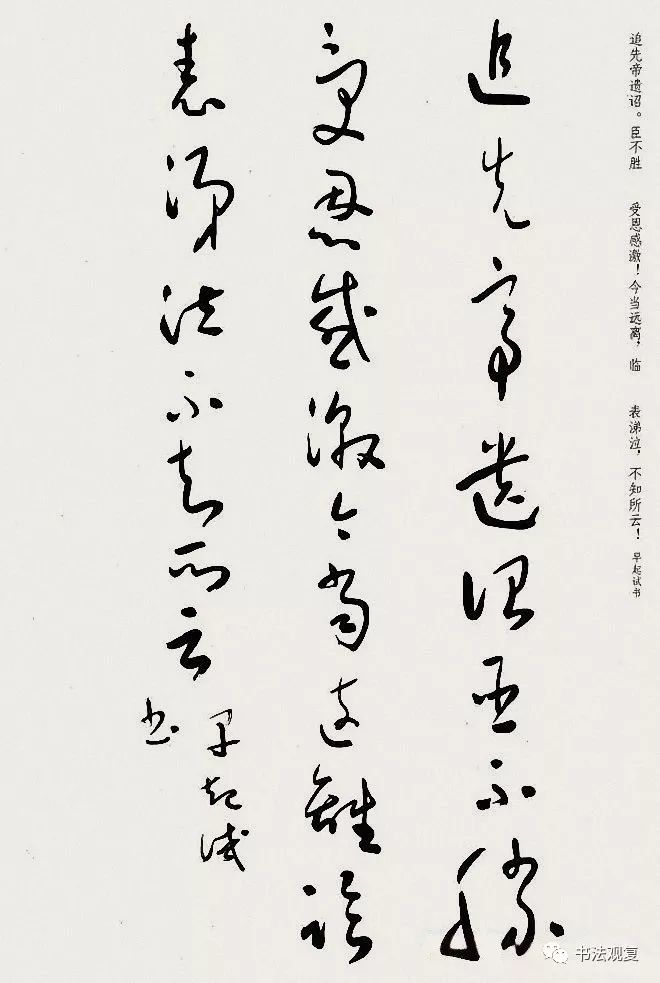 追先帝遗诏。臣不胜 受恩感激！今当远离，临 表涕泣，不知所云！ 早起试书
追先帝遺詔臣不勝
受恩感激今當遠離臨
表涕泣不知所云
早起試
書
书法观复